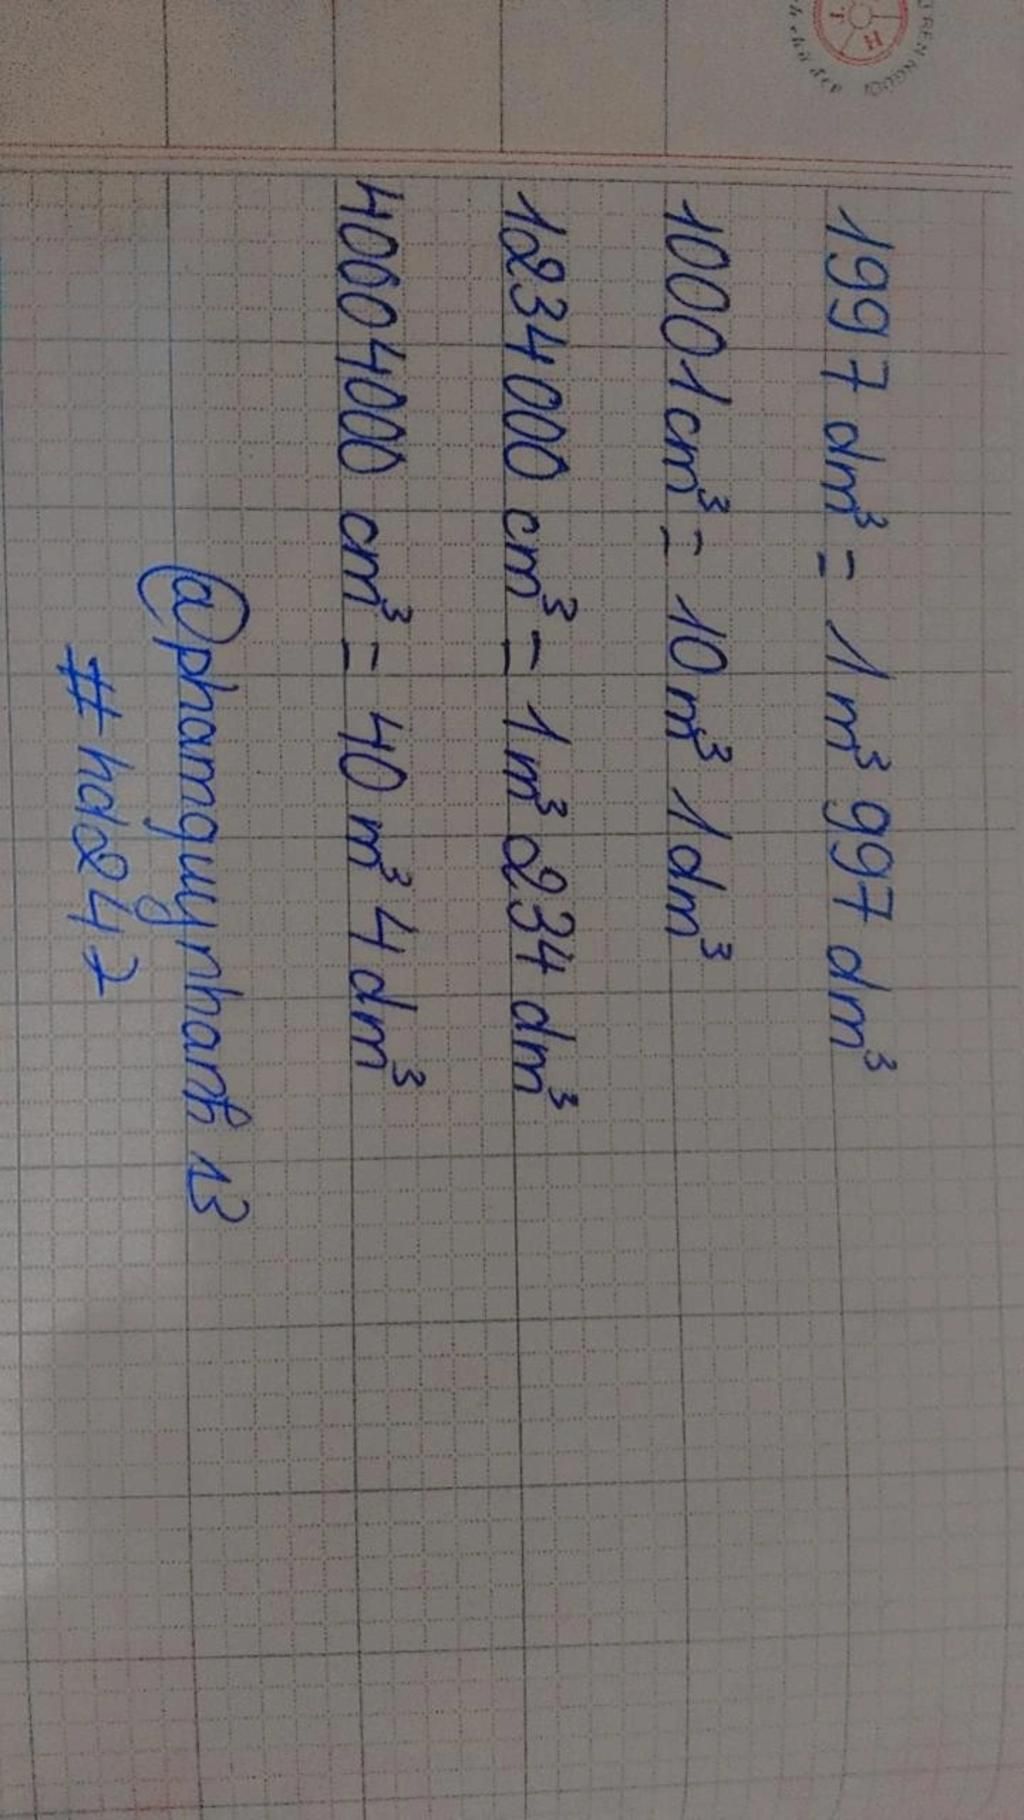 1997 dm³ = 1 m³ 997 dm³
10001 cm³ = 10 m³ 1 dm³
1234000 cm³ = 1 m³ 234 dm³
40004000 cm³ = 40 m³ 4 dm³
@phamquynhanh 13
#hd247